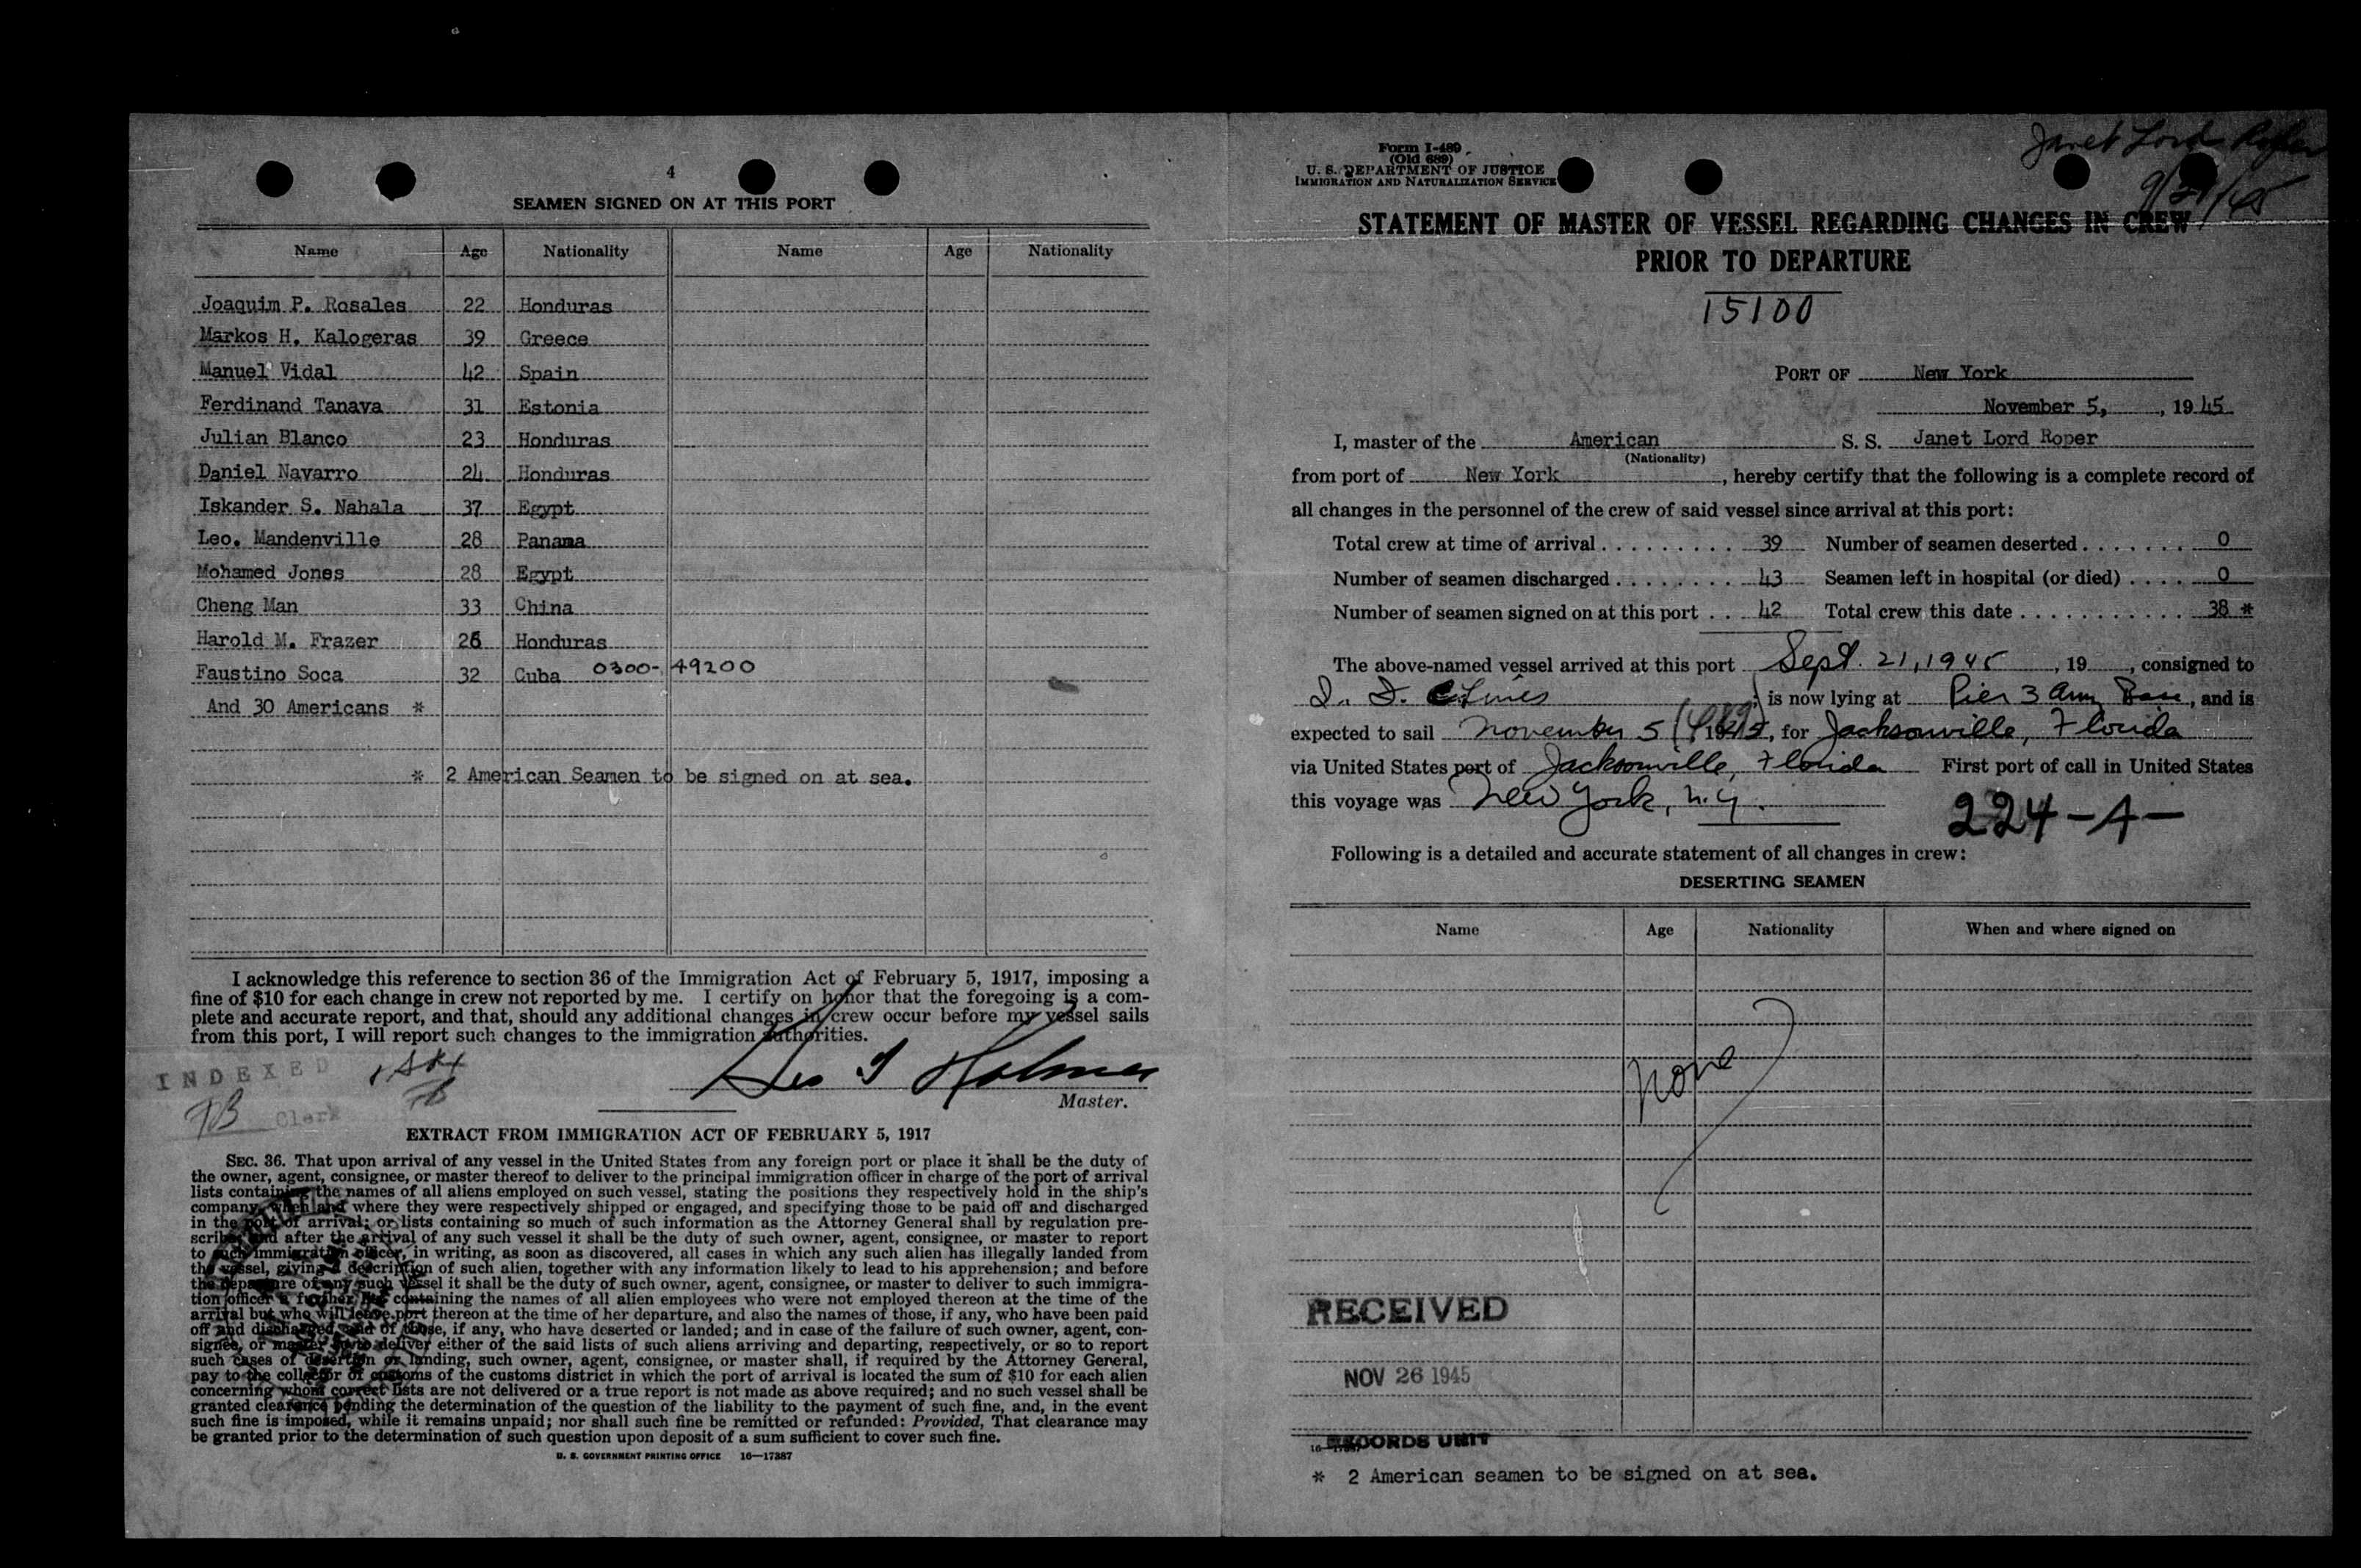 4
SEAMEN SIGNED ON AT THIS PORT
Name Age Nationality Name Age Nationality
Joaquim P. Rosales 22 Honduras
Markos H. Kalogeras 39 Greece
Manuel Vidal 42 Spain
Ferdinand Tanava 31 Estonia
Julian Blanco 23 Honduras
Daniel Navarro 24 Honduras
Iskander S. Nahala 37 Egypt
Leo. Mandenville 28 Panama
Mohamed Jones 28 Egypt
Cheng Man 33 China
Harold M. Frazer 26 Honduras
Faustino Soca 32 Cuba 0300-49200
And 30 Americans *
* 2 American Seamen to be signed on at sea.
I acknowledge this reference to section 36 of the Immigration Act of February 5, 1917, imposing a
fine of $10 for each change in crew not reported by me. I certify on honor that the foregoing is a com-
plete and accurate report, and that, should any additional changes in crew occur before my vessel sails
from this port, I will report such changes to the immigration authorities.
INDEXED
Holmes
Master.
Clerk
EXTRACT FROM IMMIGRATION ACT OF FEBRUARY 5, 1917
SEC. 36. That upon arrival of any vessel in the United States from any foreign port or place it shall be the duty of
the owner, agent, consignee, or master thereof to deliver to the principal immigration officer in charge of the port of arrival
lists containing the names of all aliens employed on such vessel, stating the positions they respectively hold in the ship's
company, when and where they were respectively shipped or engaged, and specifying those to be paid off and discharged
in the port of arrival; or lists containing so much of such information as the Attorney General shall by regulation pre-
scribe; and after the arrival of any such vessel it shall be the duty of such owner, agent, consignee, or master to report
to such immigration officer, in writing, as soon as discovered, all cases in which any such alien has illegally landed from
the vessel, giving a description of such alien, together with any information likely to lead to his apprehension; and before
the departure of any such vessel it shall be the duty of such owner, agent, consignee, or master to deliver to such immigra-
tion officer a further list containing the names of all alien employees who were not employed thereon at the time of the
arrival but who will leave port thereon at the time of her departure, and also the names of those, if any, who have been paid
off and discharged, and of those, if any, who have deserted or landed; and in case of the failure of such owner, agent, con-
signee, or master so to deliver either of the said lists of such aliens arriving and departing, respectively, or so to report
such cases of desertion or landing, such owner, agent, consignee, or master shall, if required by the Attorney General,
pay to the collector of customs of the customs district in which the port of arrival is located the sum of $10 for each alien
concerning whom correct lists are not delivered or a true report is not made as above required; and no such vessel shall be
granted clearance pending the determination of the question of the liability to the payment of such fine, and, in the event
such fine is imposed, while it remains unpaid; nor shall such fine be remitted or refunded: Provided, That clearance may
be granted prior to the determination of such question upon deposit of a sum sufficient to cover such fine.
U. S. GOVERNMENT PRINTING OFFICE 16—17387
Form I-489
(Old 689)
U. S. DEPARTMENT OF JUSTICE
IMMIGRATION AND NATURALIZATION SERVICE
Janet Lord Roper
9/21/45
STATEMENT OF MASTER OF VESSEL REGARDING CHANGES IN CREW
PRIOR TO DEPARTURE
15100
PORT OF New York
November 5, , 1945
I, master of the American S. S. Janet Lord Roper
(Nationality)
from port of New York , hereby certify that the following is a complete record of
all changes in the personnel of the crew of said vessel since arrival at this port:
Total crew at time of arrival . . . . . . . . . 39 Number of seamen deserted . . . . . . . 0
Number of seamen discharged . . . . . . . . 43 Seamen left in hospital (or died) . . . . 0
Number of seamen signed on at this port . . 42 Total crew this date . . . . . . . . . . . 38 *
The above-named vessel arrived at this port Sept. 21, 1945 , 19 , consigned to
Lines ; is now lying at Pier 3 Army Base , and is
expected to sail November 5 1945, for Jacksonville, Florida
via United States port of Jacksonville, Florida First port of call in United States
this voyage was New York, N.Y.
224-A-
Following is a detailed and accurate statement of all changes in crew:
DESERTING SEAMEN
Name Age Nationality When and where signed on
None
RECEIVED
NOV 26 1945
RECORDS UNIT
* 2 American seamen to be signed on at sea.